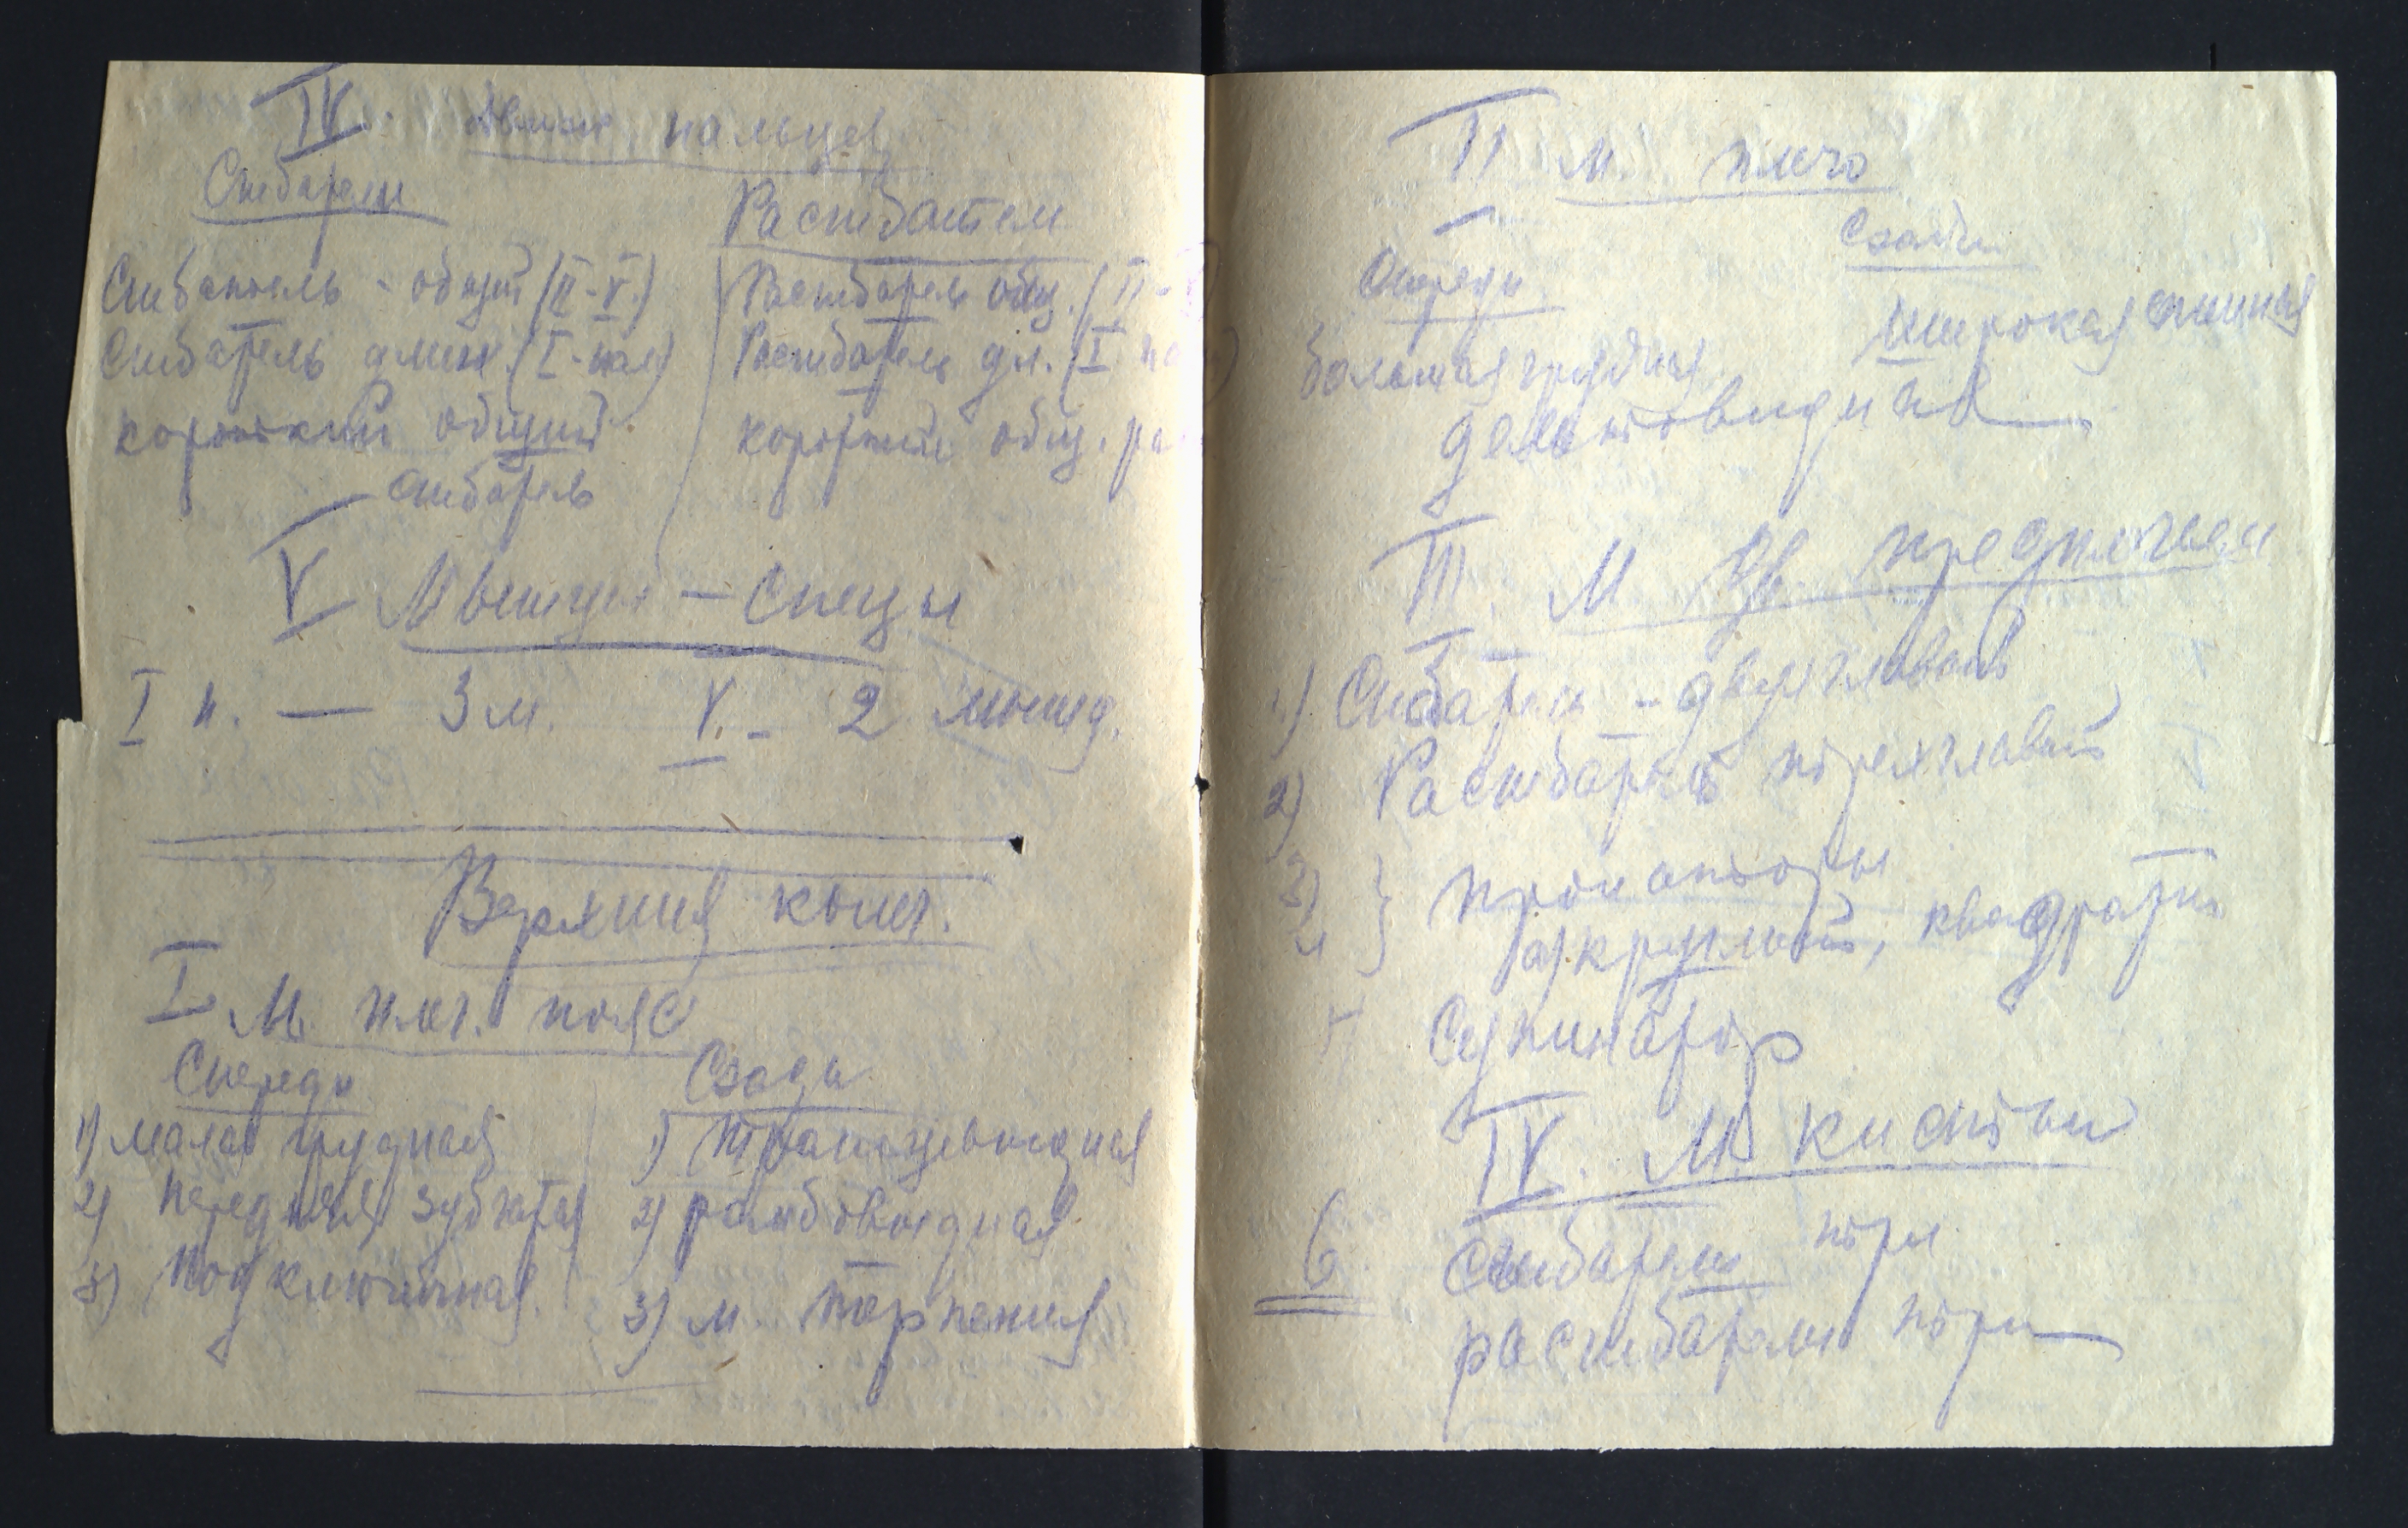 IV. Движ. пальцев
Сгибатели
Расгибатели
Сгибатель - общий (II-V.)
Сгибатель длин. (I-пал)
короткий общий
сгибатель
Расгибатель общ. (II-
Расгибатель дл. (I. па
короткий общ. ра
V Мышцы - спецы
I п. — 3 м. V. - 2 мышц.
Верхния конеч.
I. М. плеч. пояс
Спереди
1) малая грудная
2) передняя зубчатая
3) Подключичная.
Сзади
1) трапецевидная
2) ромбовидная
3) м. терпения
II м. плечо
Спереди
Сзади
большая грудная
широкая спинная
дельтовидная
III. М дв. предплечьем
1) Сгибатели - двуглавый
2) Расгибатель трехглавый
3) } пронаторы
и круглый, квадратн
Супинатор
IV. М. кистьи
6 сгибатели три
расгибатели три